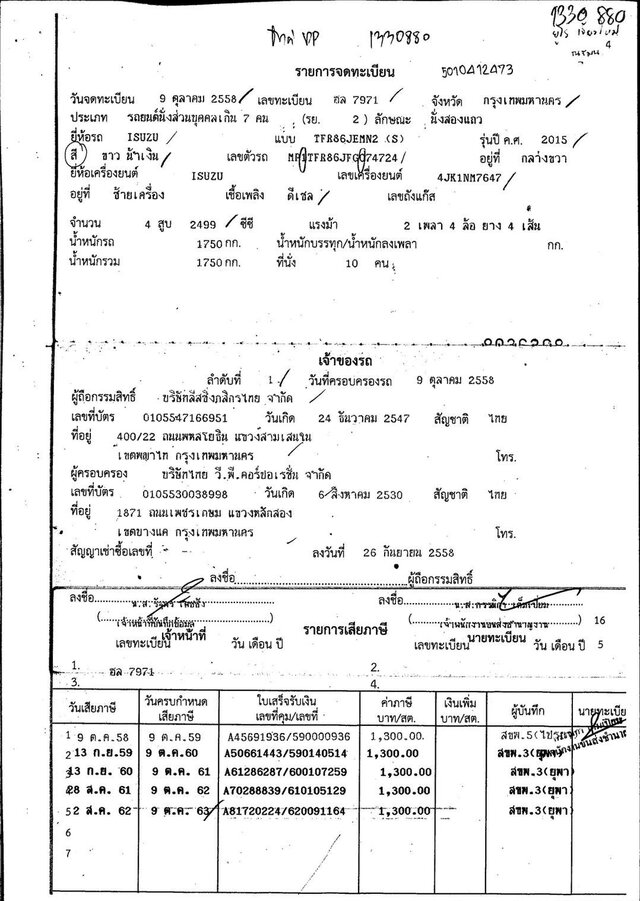 1330880
1330 880
4
รายการจดทะเบียน 5010412473
วันจดทะเบียน 9 ตุลาคม 2558 เลขทะเบียน ฮล 7971 จังหวัด กรุงเทพมหานคร
ประเภท รถยนต์นั่งส่วนบุคคลเกิน 7 คน (รย. 2) ลักษณะ นั่งสองแถว
ยี่ห้อรถ ISUZU แบบ TFR86JEMN2 (S) รุ่นปี ค.ศ. 2015
สี ขาว น้ำเงิน เลขตัวรถ MP1TFR86JFG074724 อยู่ที่ กลางขวา
ยี่ห้อเครื่องยนต์ ISUZU เลขเครื่องยนต์ 4JK1NM7647
อยู่ที่ ซ้ายเครื่อง เชื้อเพลิง ดีเซล เลขถังแก๊ส
จำนวน 4 สูบ 2499 ซีซี แรงม้า 2 เพลา 4 ล้อ ยาง 4 เส้น
น้ำหนักรถ 1750 กก. น้ำหนักบรรทุก/น้ำหนักลงเพลา กก.
น้ำหนักรวม 1750 กก. ที่นั่ง 10 คน
เจ้าของรถ
ลำดับที่ 1 วันที่ครอบครองรถ 9 ตุลาคม 2558
ผู้ถือกรรมสิทธิ์ บริษัทลีสซิ่งกสิกรไทย จำกัด
เลขที่บัตร 0105547166951 วันเกิด 24 ธันวาคม 2547 สัญชาติ ไทย
ที่อยู่ 400/22 ถนนพหลโยธิน แขวงสามเสนใน
เขตพญาไท กรุงเทพมหานคร โทร.
ผู้ครอบครอง บริษัทไทย วี.พี.คอร์ปอเรชั่น จำกัด
เลขที่บัตร 0105530038998 วันเกิด 6 สิงหาคม 2530 สัญชาติ ไทย
ที่อยู่ 1871 ถนนเพชรเกษม แขวงหลักสอง
เขตบางแค กรุงเทพมหานคร โทร.
สัญญาเช่าซื้อเลขที่ ลงวันที่ 26 กันยายน 2558
ลงชื่อ ผู้ถือกรรมสิทธิ์
ลงชื่อ ลงชื่อ
(เจ้าหน้าที่บันทึกข้อมูล) (เจ้าพนักงานขนส่งชำนาญงาน) 16
เจ้าหน้าที่ รายการเสียภาษี นายทะเบียน
เลขทะเบียน วัน เดือน ปี เลขทะเบียน วัน เดือน ปี 5
1. ฮล 7971 2.
3. 4.
วันเสียภาษี วันครบกำหนดเสียภาษี ใบเสร็จรับเงิน เลขที่คุม/เลขที่ ค่าภาษี บาท/สต. เงินเพิ่ม บาท/สต. ผู้บันทึก นายทะเบีย
1 9 ต.ค.58 9 ต.ค.59 A45691936/590000936 1,300.00 สขพ.5
2 13 ก.ย.59 9 ต.ค.60 A50661443/590140514 1,300.00 สขพ.3(ยุพา)
3 13 ก.ย. 60 9 ต.ค. 61 A61286287/600107259 1,300.00 สขพ.3(ยุพา)
4 28 ส.ค. 61 9 ต.ค. 62 A70288839/610105129 1,300.00 สขพ.3(ยุพา)
5 2 ส.ค. 62 9 ต.ค. 63 A81720224/620091164 1,300.00 สขพ.3(ยุพา)
6
7